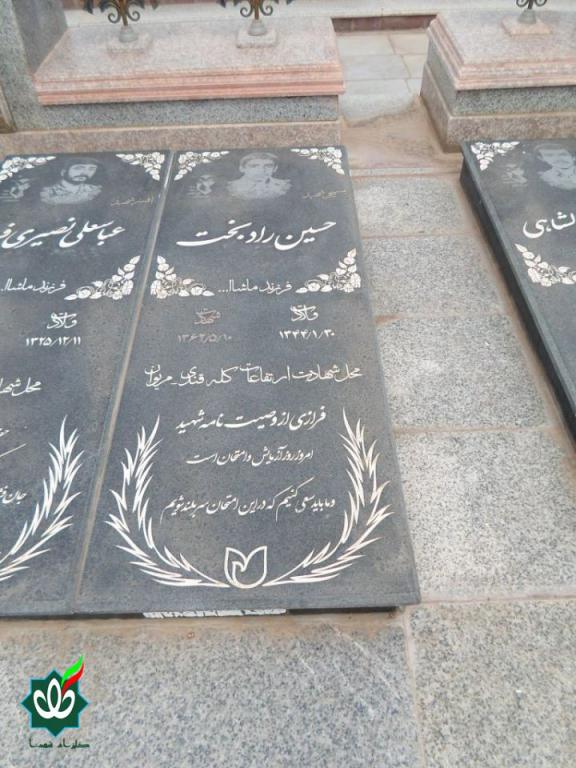 بسیجی شهید
حسین رادبخت
فرزند ماشاا...
ولادت
شهادت
۱۳۴۴/۱/۳۰
۱۳۶۲/۵/۱۰
محل شهادت ارتفاعات کله قندی - مریوان
فرازی از وصیت نامه شهید
امروز روز آزمایش و امتحان است
و ما باید سعی کنیم که در این امتحان سربلند شویم
عباسعلی نصیری
فرزند ماشاا...
ولادت
۱۳۲۵/۱۲/۱۱
محل شهاد